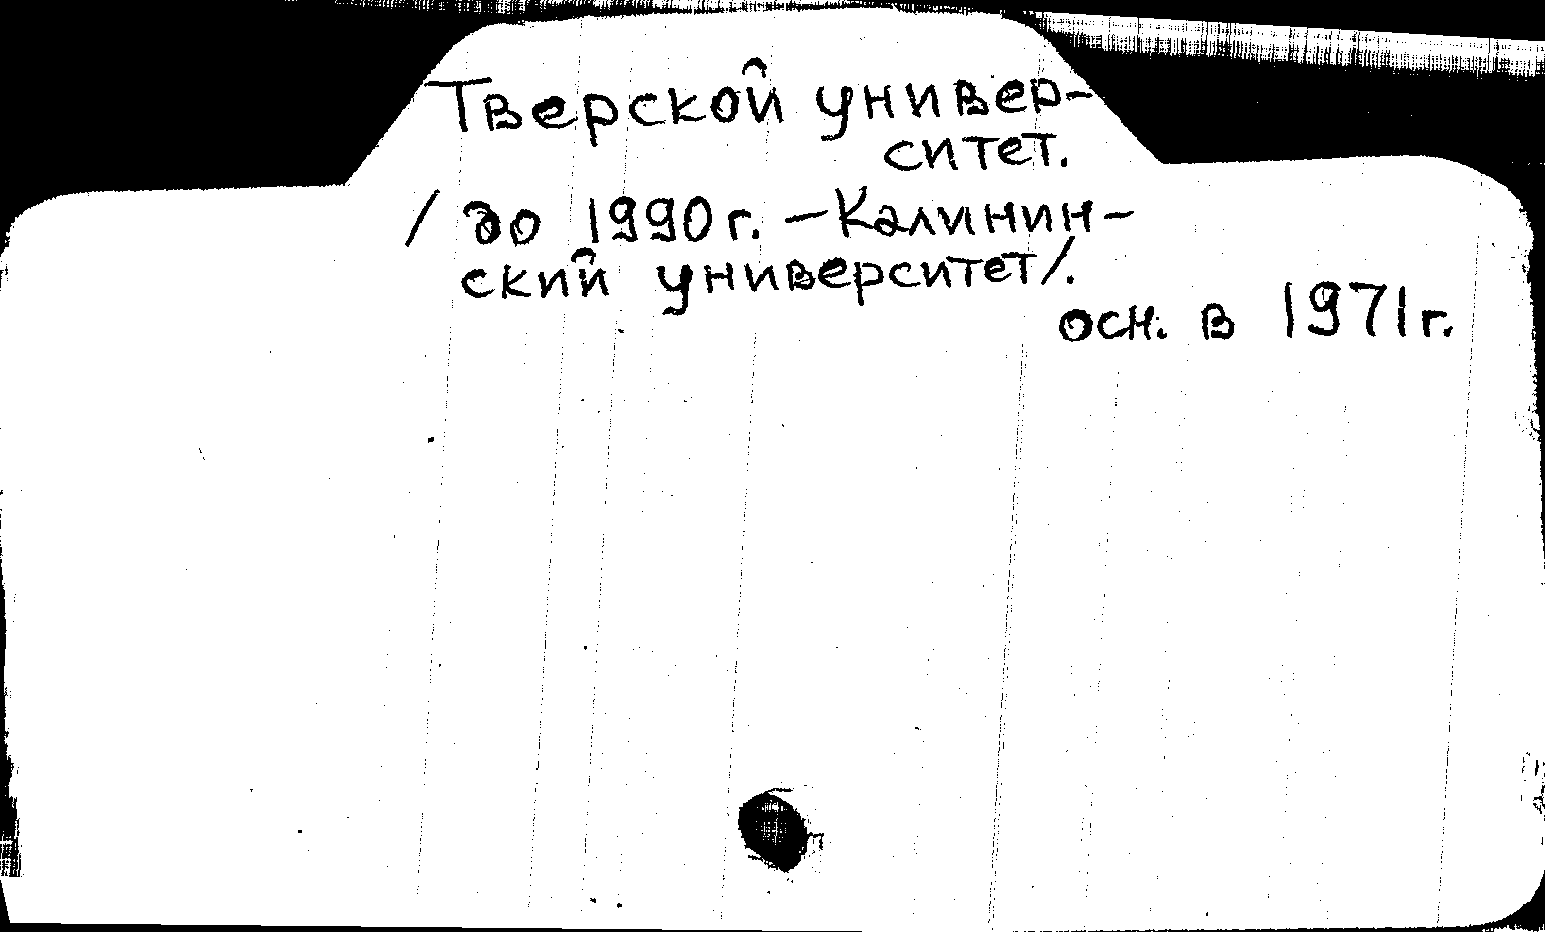 Тверской универ-
ситет.
/ до 1990 г. - Калинин-
ский университет/.
осн. в 1971 г.